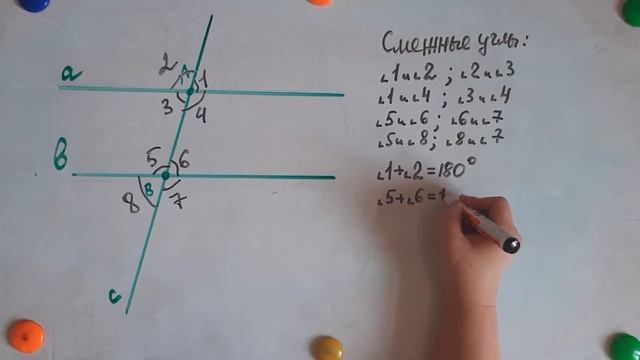 Смежные углы:
∟1 и ∟2 ; ∟2 и ∟3
∟1 и ∟4 ; ∟3 и ∟4
∟5 и ∟6 ; ∟6 и ∟7
∟5 и ∟8 ; ∟8 и ∟7
∟1+∟2=180°
∟5+∟6=1
2 A 1
a
3 4
b 5 6
B
8 7
c